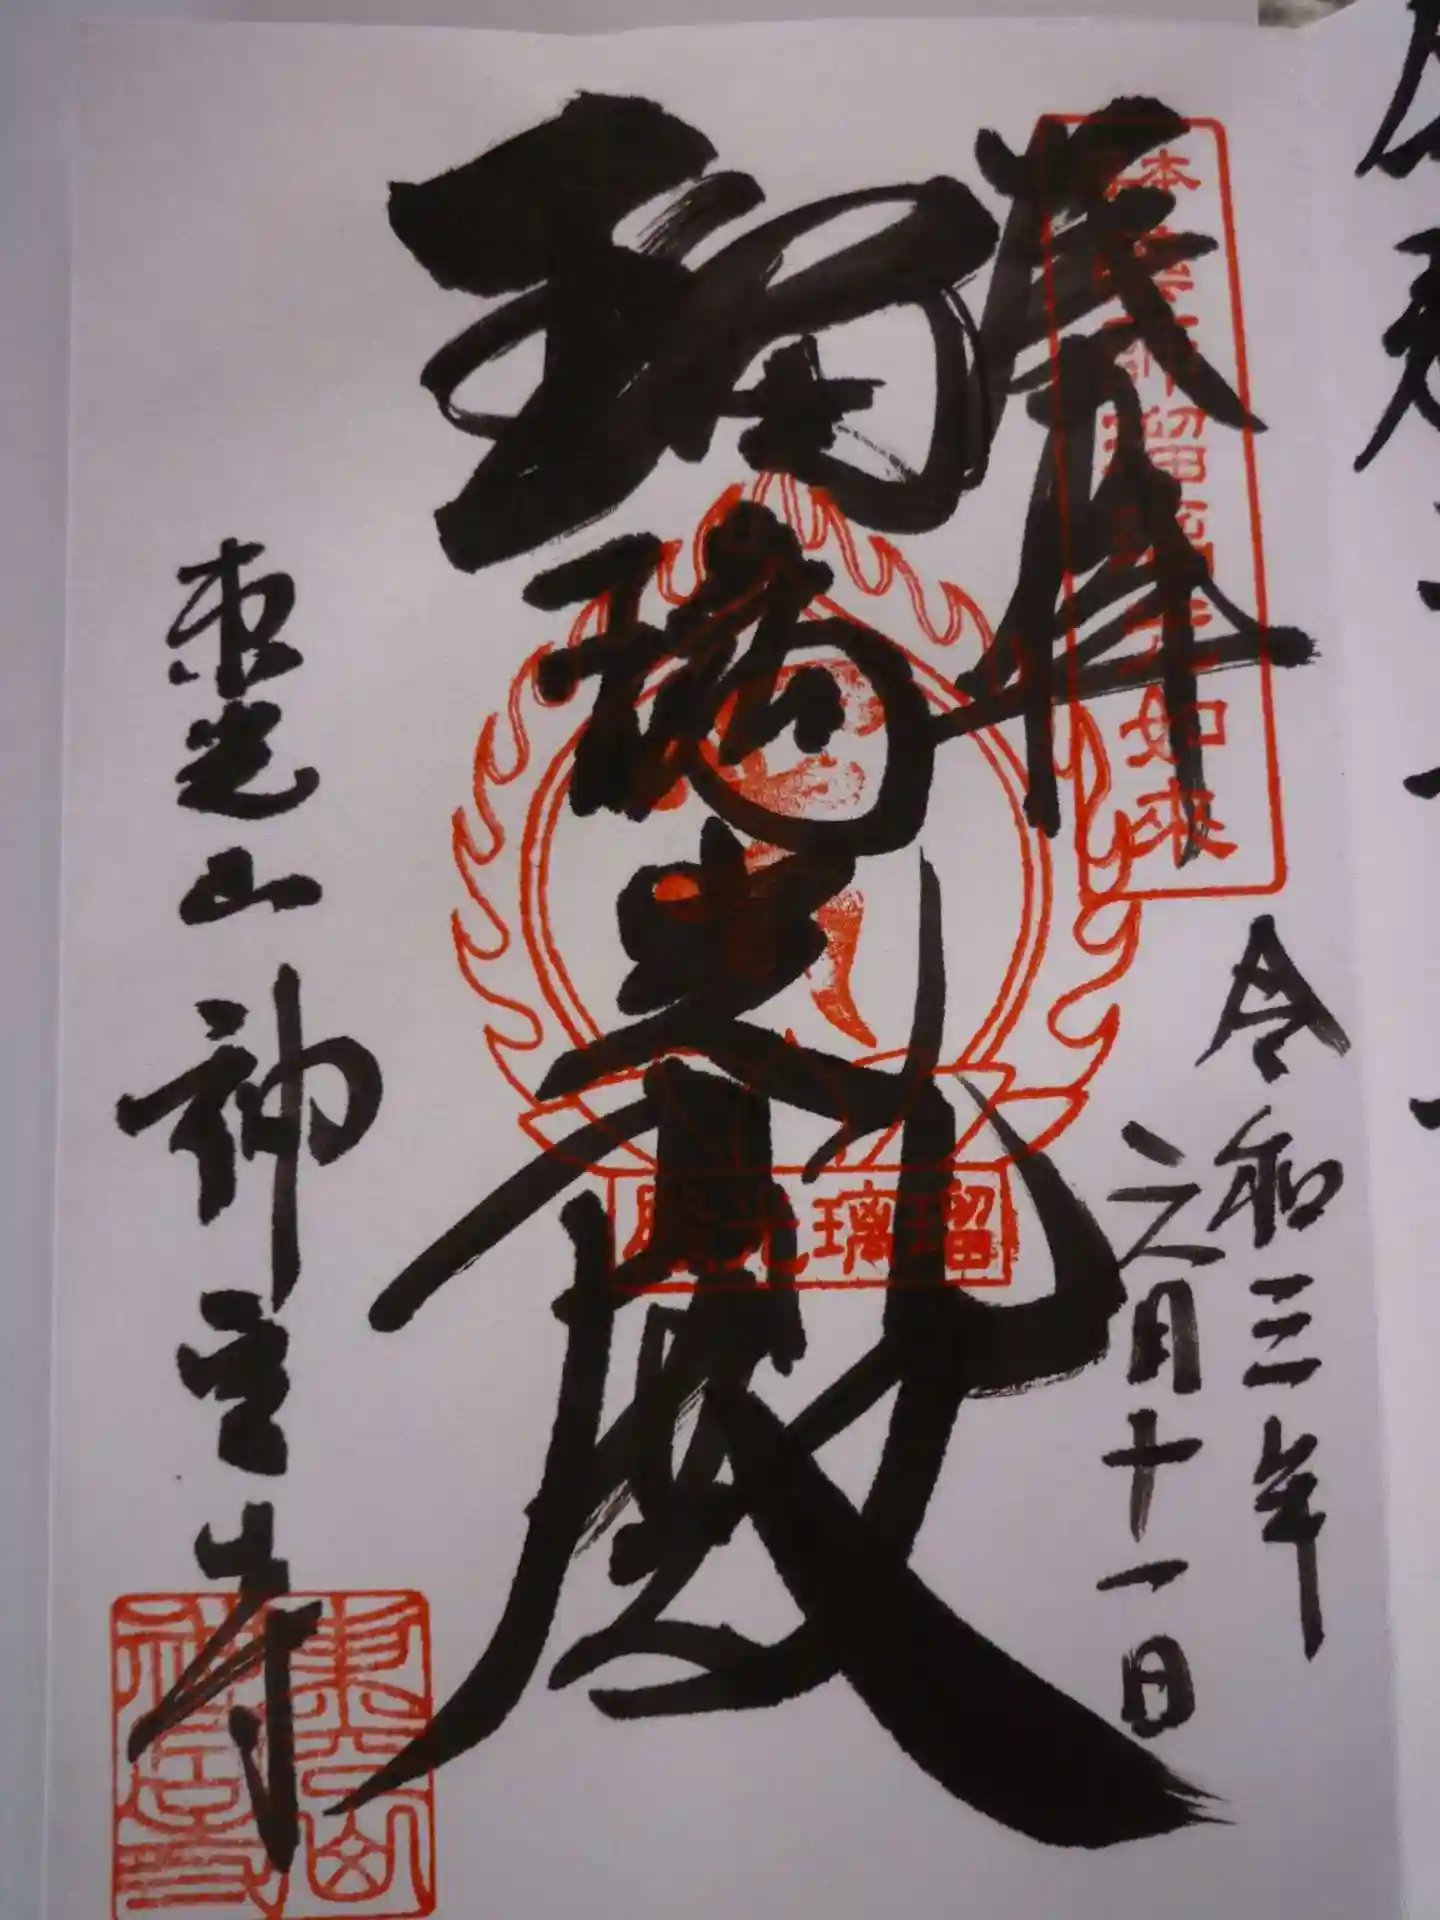 奉拝
本尊薬師瑠璃光如来
令和三年
六月十一日
瑠璃光殿
瑠璃光殿
東光山神宮寺
東光山
神宮寺